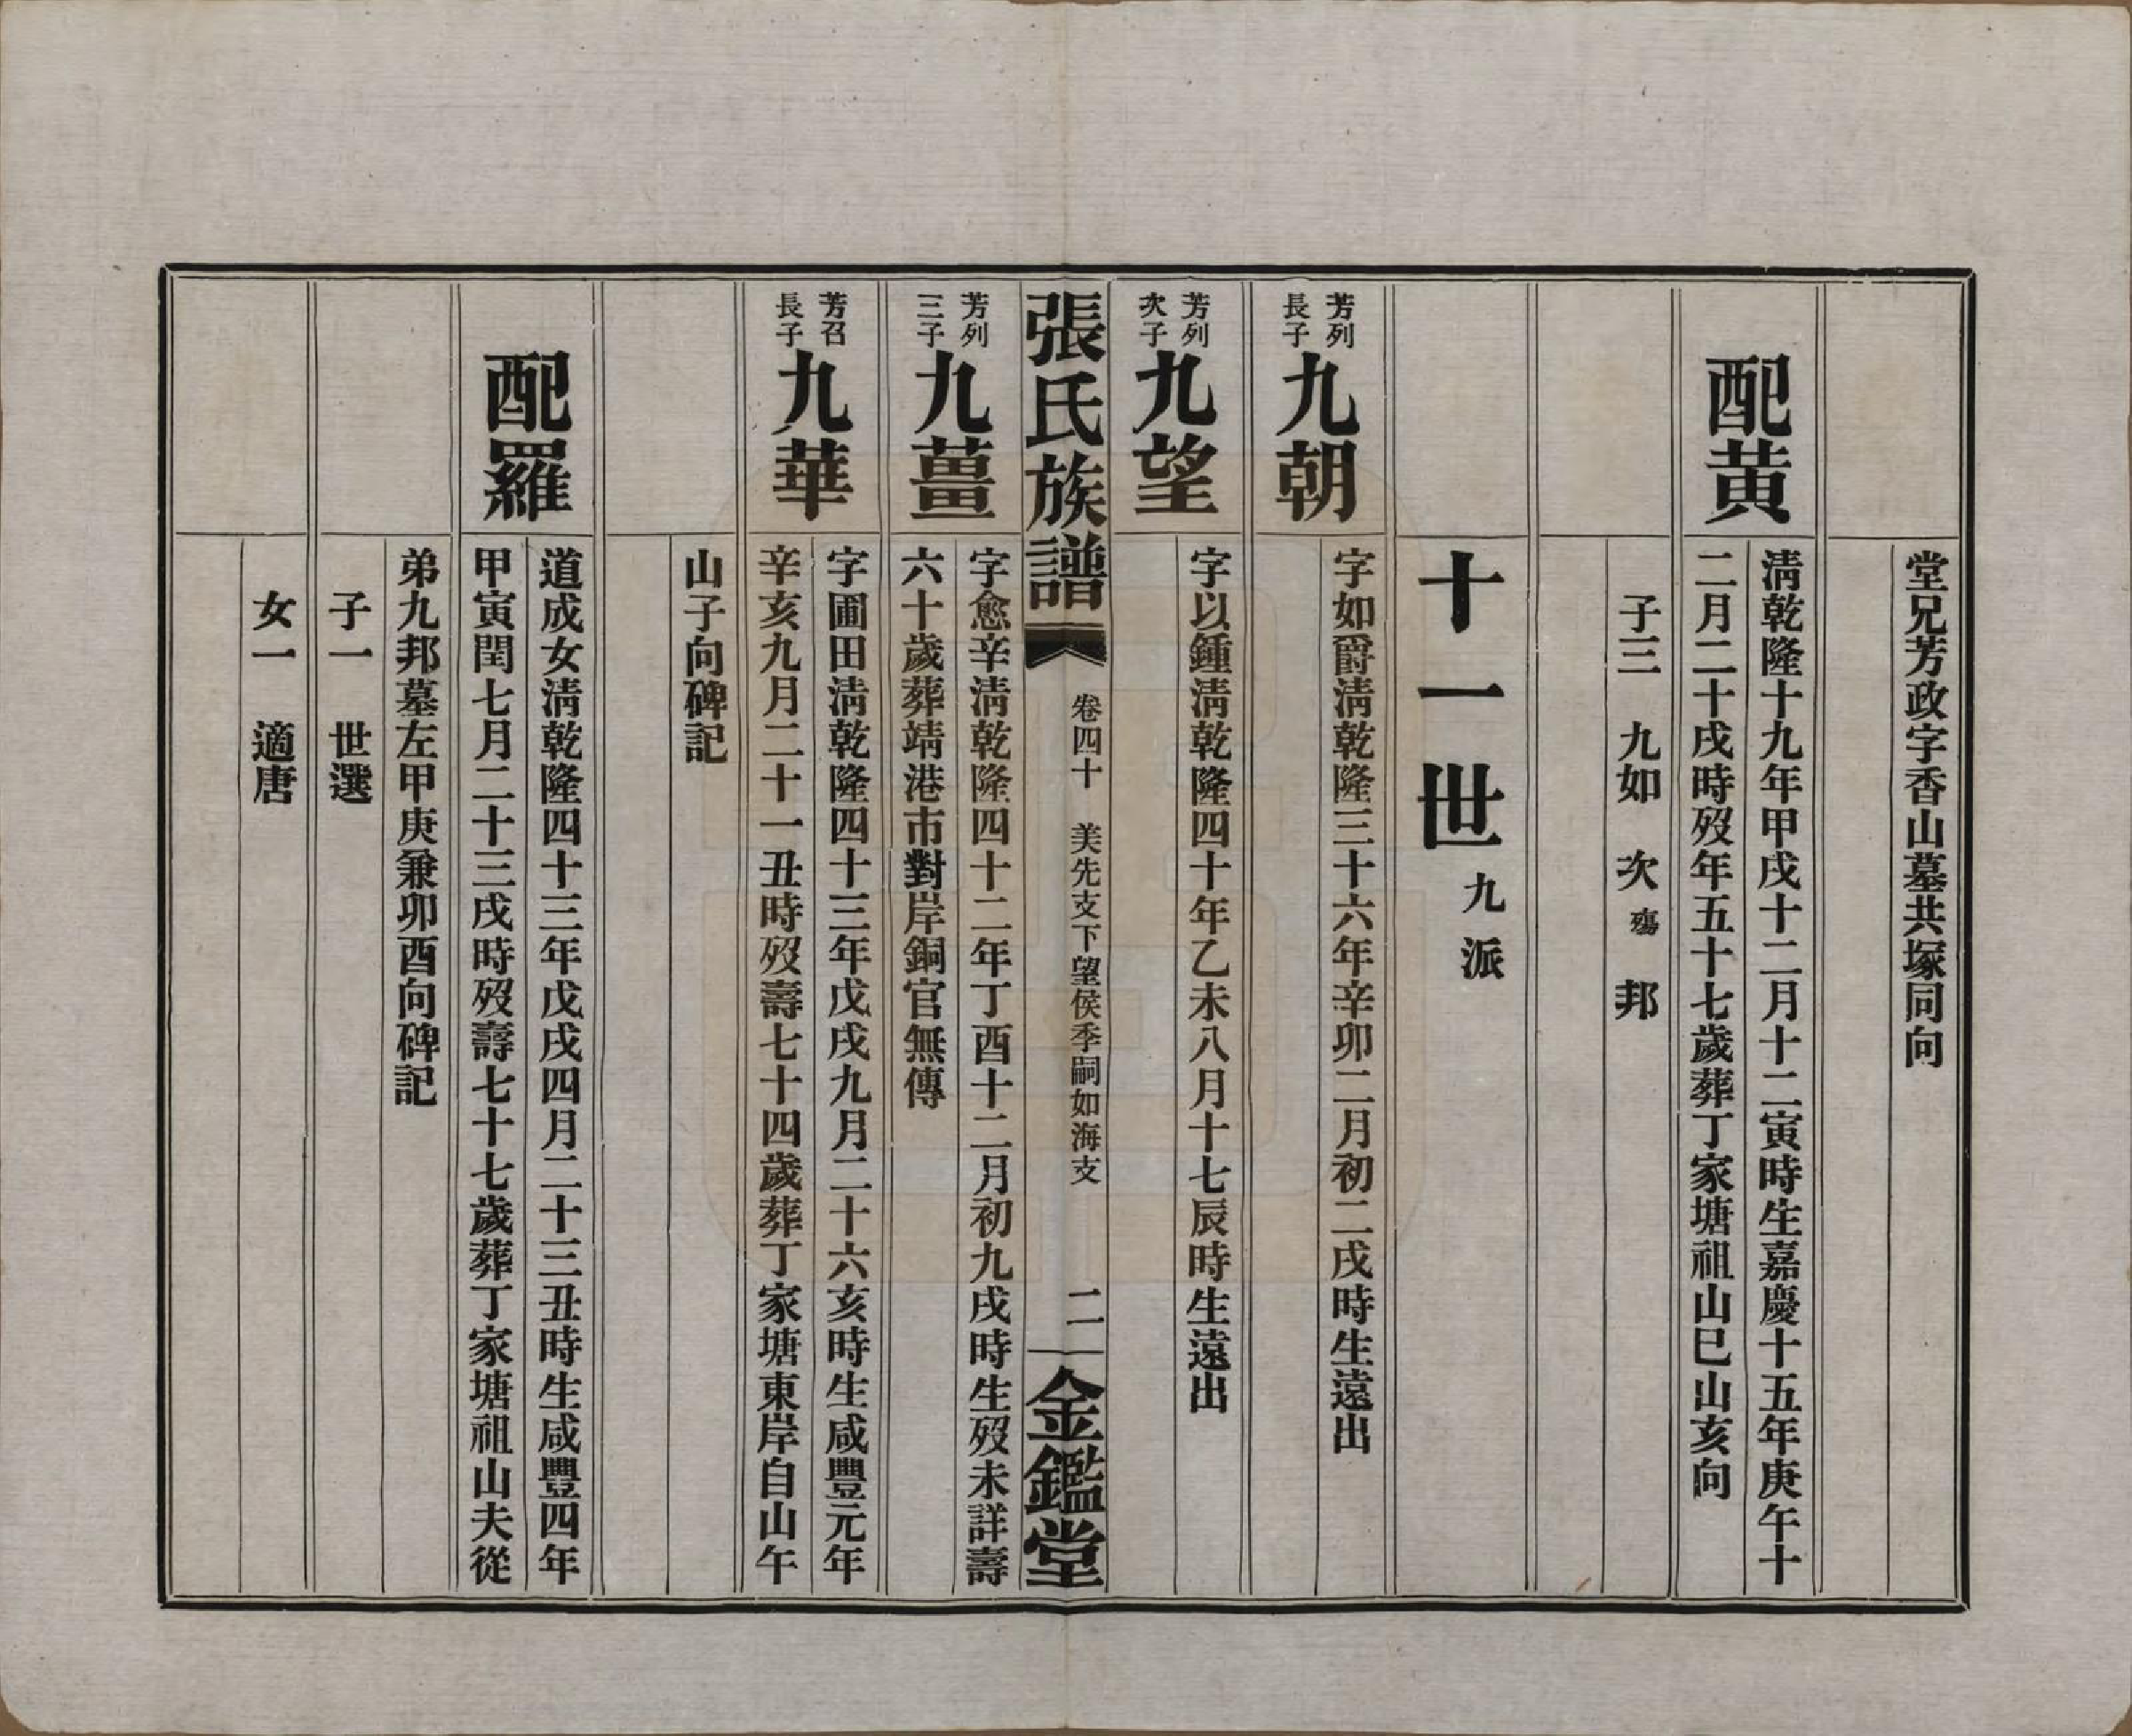 堂兄芳政字香山墓共塚同向
配黃
清乾隆十九年甲戌十二月十二寅時生嘉慶十五年庚午十
二月二十戌時歿年五十七歲葬丁家塘祖山巳山亥向
子三　九如　次殤　邦
十一世九派
芳列
長子
九朝
字如爵清乾隆三十六年辛卯二月初二戌時生遠出
芳列
次子
九望
字以鍾清乾隆四十年乙未八月十七辰時生遠出
張氏族譜
卷四十　美先支下望侯季嗣如海支
二
金鑑堂
芳列
三子
九薑
字愈辛清乾隆四十二年丁酉十二月初九戌時生歿未詳壽
六十歲葬靖港市對岸銅官無傳
芳召
長子
九華
字圃田清乾隆四十三年戊戌九月二十六亥時生咸豐元年
辛亥九月二十一丑時歿壽七十四歲葬丁家塘東岸自山午
山子向碑記
配羅
道成女清乾隆四十三年戊戌四月二十三丑時生咸豐四年
甲寅閏七月二十三戌時歿壽七十七歲葬丁家塘祖山夫從
弟九邦墓左甲庚兼卯酉向碑記
子一　世選
女一　適唐